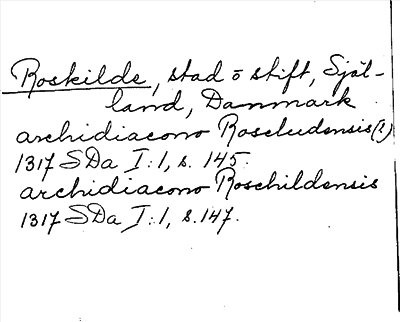 Roskilde, stad o stift, Själ-
land, Danmark
archidiacono Roscludensis(!)
1317 SDa I:1, s. 145.
archidiacono Roschildensis
1317 SDa I:1, s. 147.